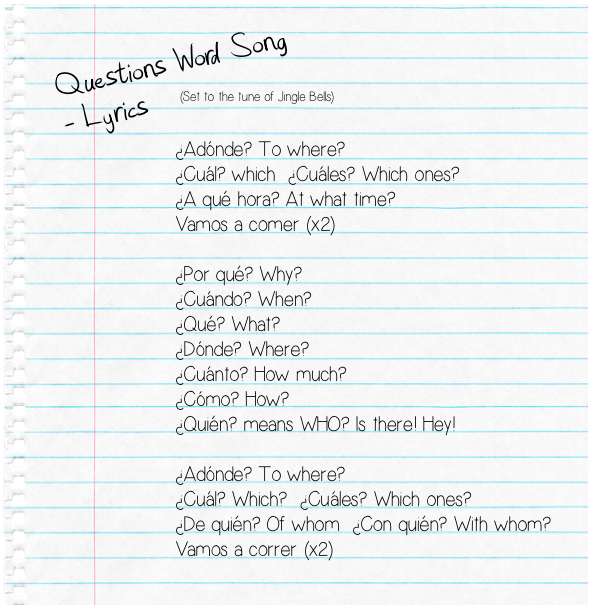 Questions Word Song
- Lyrics
(Set to the tune of Jingle Bells)
¿Adónde? To where?
¿Cuál? which ¿Cuáles? Which ones?
¿A qué hora? At what time?
Vamos a comer (x2)
¿Por qué? Why?
¿Cuándo? When?
¿Qué? What?
¿Dónde? Where?
¿Cuánto? How much?
¿Cómo? How?
¿Quién? means WHO? Is there! Hey!
¿Adónde? To where?
¿Cuál? Which? ¿Cuáles? Which ones?
¿De quién? Of whom ¿Con quién? With whom?
Vamos a correr (x2)